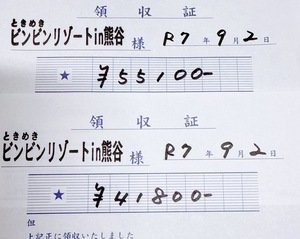 領収証
ときめき
ビンビンリゾートin熊谷 様 R7年9月2日
★ ¥55100-
領収証
ときめき
ビンビンリゾートin熊谷 様 R7年9月2日
★ ¥41800-
但
上記正に領収いたしました